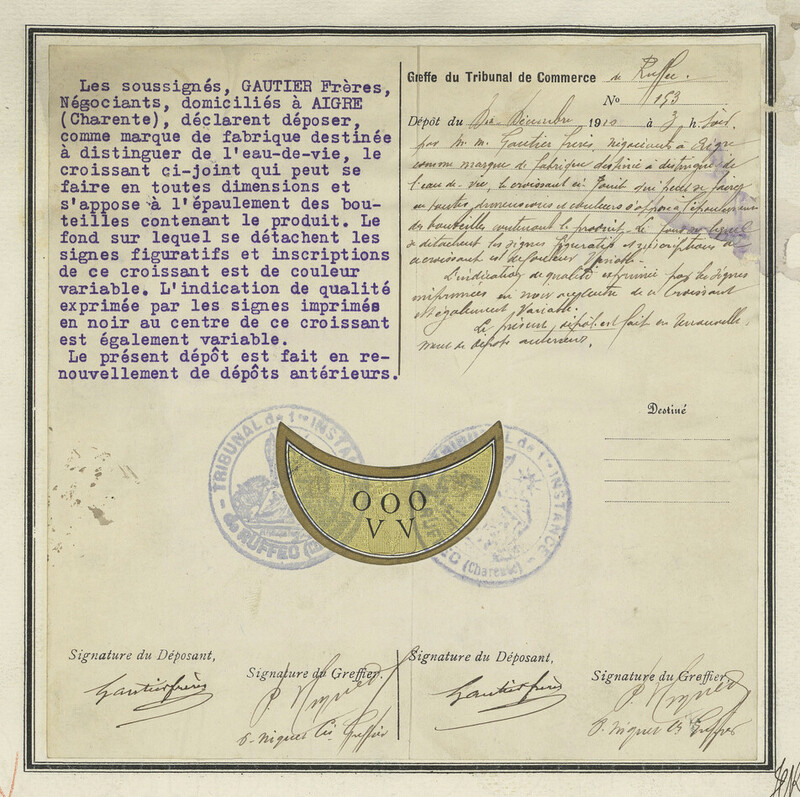 Les soussignés, GAUTIER Frères,
Négociants, domiciliés à AIGRE
(Charente), déclarent déposer,
comme marque de fabrique destinée
à distinguer de l'eau-de-vie, le
croissant ci-joint qui peut se
faire en toutes dimensions et
s'appose à l'épaulement des bou-
teilles contenant le produit. Le
fond sur lequel se détachent les
signes figuratifs et inscriptions
de ce croissant est de couleur
variable. L'indication de qualité
exprimée par les signes imprimés
en noir au centre de ce croissant
est également variable.
Le présent dépôt est fait en re-
nouvellement de dépôts antérieurs.
Greffe du Tribunal de Commerce de Ruffec.
No 153
Dépôt du Décembre 1910 à 3 h. soir.
par M. M. Gautier frères, négociants à Aigre
comme marque de fabrique destinée à distinguer de
l'eau-de-vie, le croissant ci-joint qui peut se faire
en toutes dimensions et couleurs s'appose à l'épaulement
des bouteilles contenant le produit. Le fond sur lequel
se détachent les signes figuratifs et inscriptions de
ce croissant est de couleur variable.
L'indication de qualité exprimée par les signes
imprimés en noir au centre de ce croissant
est également variable.
Le présent dépôt est fait en renouvelle-
ment de dépôts antérieurs.
Destiné
TRIBUNAL de 1re INSTANCE
de RUFFEC
TRIBUNAL de 1re INSTANCE
RUFFEC (Charente)
OOO
VV
Signature du Déposant,
Gautier frères
Signature du Greffier.
Signature du Déposant,
Gautier frères
Signature du Greffier.